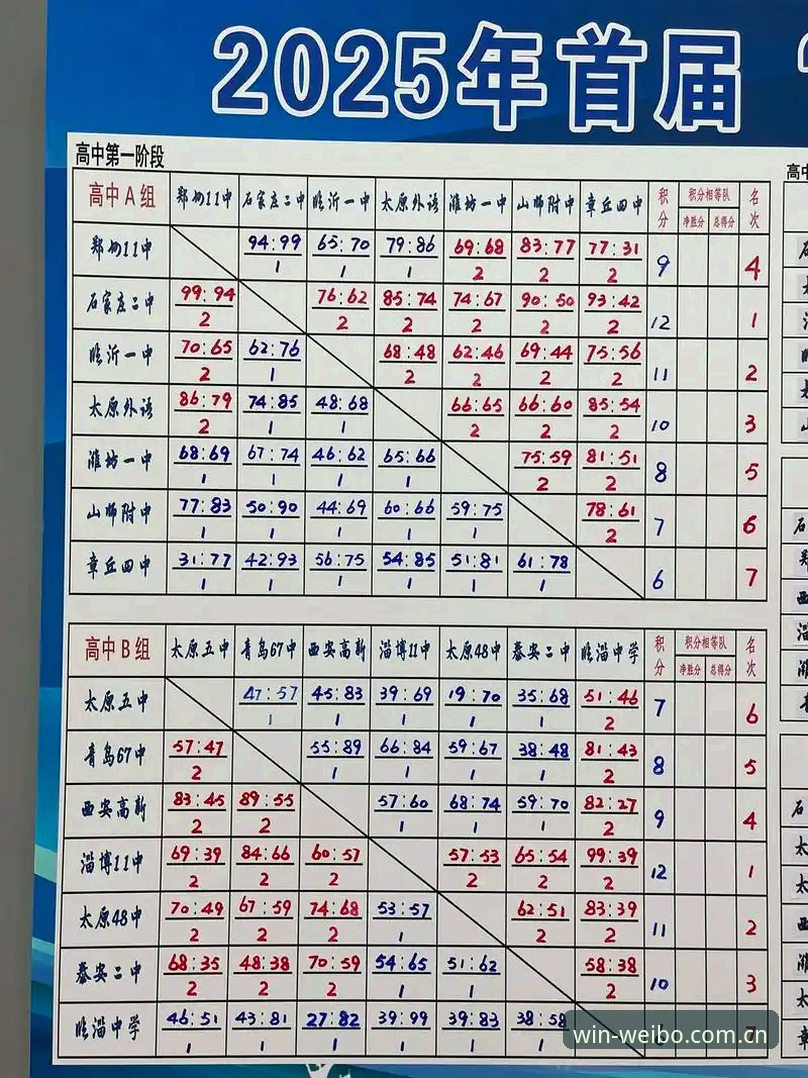 2025年首届
高中第一阶段
高中A组 郑州11中 石家庄二中 临沂一中 太原外语 潍坊一中 山师附中 章丘四中 积分 积分相等队 净胜分 总得分 名次
郑州11中 94:99 65:70 79:86 69:68 83:77 77:31
1 1 1 2 2 2 9 4
石家庄二中 99:94 76:62 85:74 74:67 90:50 93:42
2 2 2 2 2 2 12 1
临沂一中 70:65 62:76 68:48 62:46 69:44 75:56
2 1 2 2 2 2 11 2
太原外语 86:79 74:85 48:68 66:65 66:60 85:54
2 1 1 2 2 2 10 3
潍坊一中 68:69 67:74 46:62 65:66 75:59 81:51
1 1 1 1 2 2 8 5
山师附中 77:83 50:90 44:69 60:66 59:75 78:61
1 1 1 1 1 2 7 6
章丘四中 31:77 42:93 56:75 54:85 51:81 61:78
1 1 1 1 1 1 6 7
高中B组 太原五中 青岛67中 西安高新 淄博11中 太原48中 泰安二中 临淄中学 积分 积分相等队 净胜分 总得分 名次
太原五中 47:57 45:83 39:69 19:70 35:68 51:46
1 1 1 1 1 2 7 6
青岛67中 57:47 55:89 66:84 59:67 38:48 81:43
2 1 1 1 1 2 8 5
西安高新 83:45 89:55 57:60 68:74 59:70 82:27
2 2 1 1 1 2 9 4
淄博11中 69:39 84:66 60:57 57:53 65:54 99:39
2 2 2 2 2 2 12 1
太原48中 70:49 67:59 74:68 53:57 62:51 83:39
2 2 2 1 2 2 11 2
泰安二中 68:35 48:38 70:59 54:65 51:62 58:38
2 2 2 1 1 2 10 3
临淄中学 46:51 43:81 27:82 39:99 39:83 38:58
1 1 1 1 1 1 7
win-weibo.com.cn